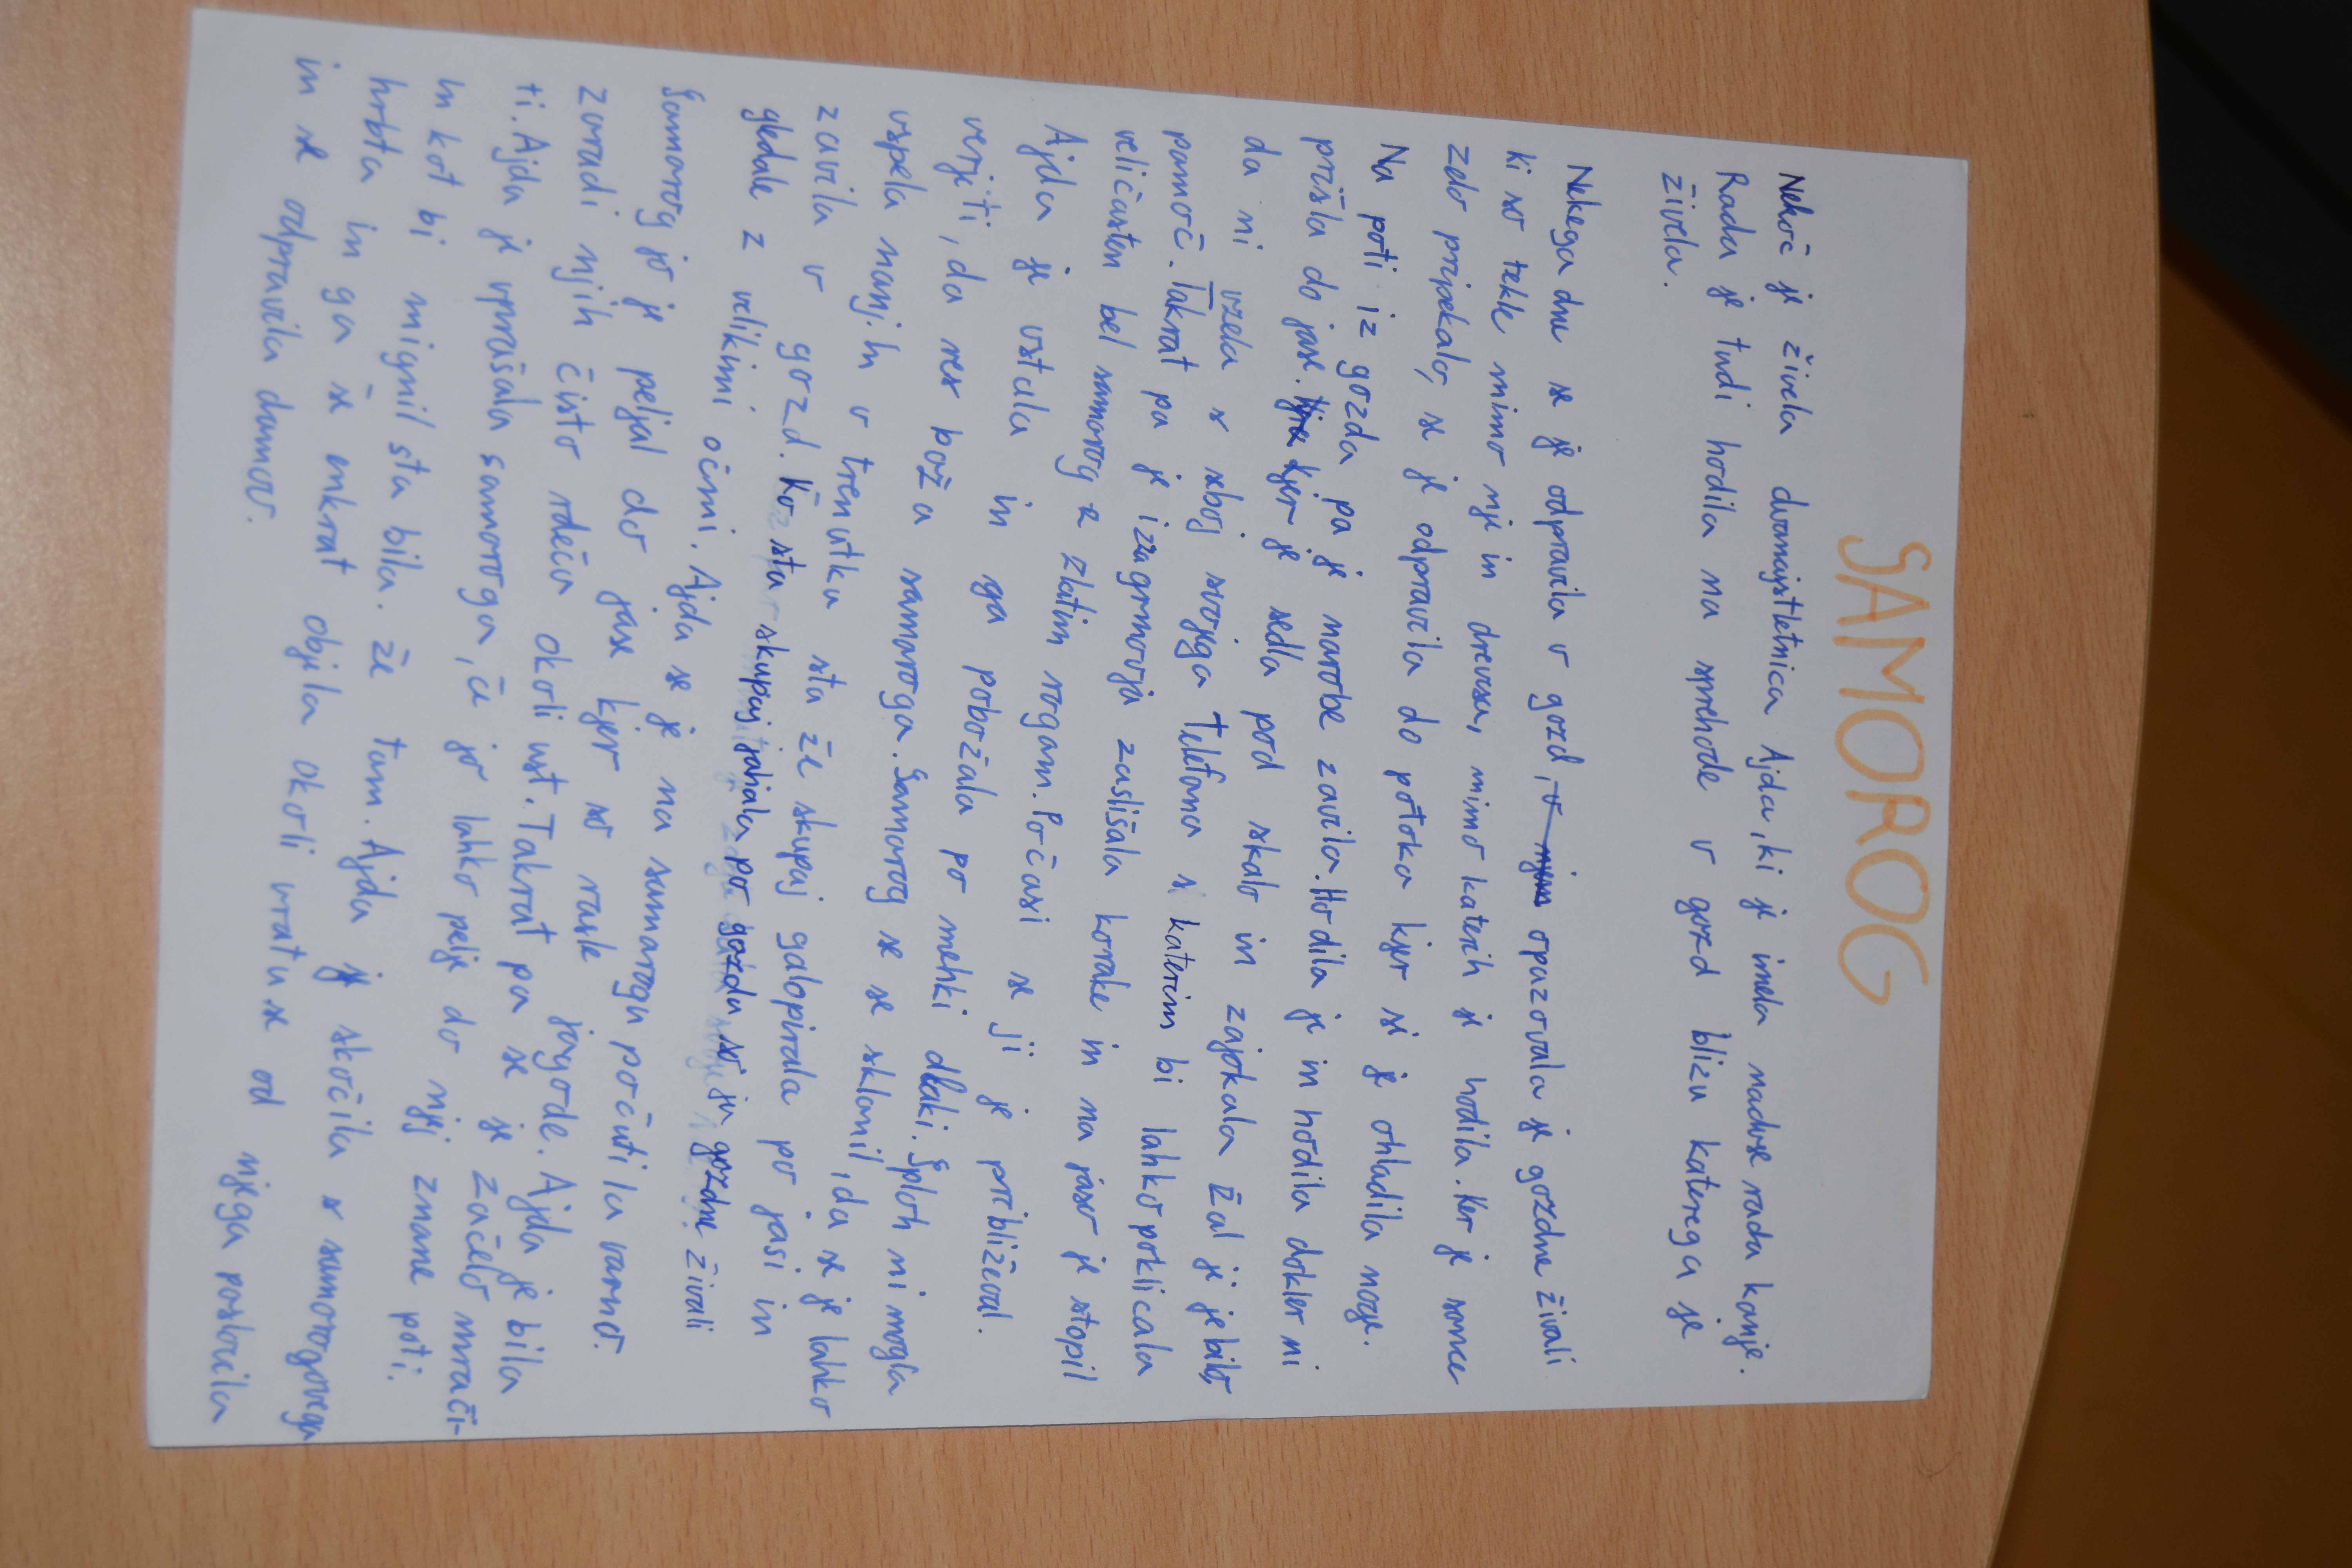 SAMOROG
Nekoč je živela dvanajstletnica Ajda, ki je imela nadvse rada konje.
Rada je tudi hodila na sprehode v gozd blizu katerega je
živela.
Nekega dne se je odpravila v gozd, opazovala je gozdne živali
ki so tekle mimo nje in drevesa, mimo katerih je hodila. Ker je sonce
zelo pripekalo, se je odpravila do potoka kjer si je ohladila noge.
Na poti iz gozda pa je narobe zavila. Hodila je in hodila dokler ni
prišla do jase. kjer je sedla pod skalo in zajokala žal ji je bilo
da ni vzela s seboj svojega telefona s katerim bi lahko poklicala
pomoč. Takrat pa je iz grmovja zaslišala korake in na jaso je stopil
veličasten bel samorog z zlatim rogam. Počasi se ji je približeval.
Ajda je vstala in ga pobožala po mehki dlaki. Sploh ni mogla
verjeti, da res boža samoroga. Samorog se se sklonil, da se je lahko
vspela nanj. In v trenutku sta že skupaj galopirala po jasi in
zavila v gozd. Ko sta skupaj jahala po gozdu so ju gozdne živali
gledale z velikimi očmi. Ajda se je na samorogu počutila varno.
Samorog jo je peljal do jase kjer so rasle jagode. Ajda je bila
zaradi njih čisto rdeča okoli ust. Takrat pa se je začelo mrači-
ti. Ajda je vprašala samoroga, če jo lahko pelje do njej znane poti.
In kot bi mignil sta bila že tam. Ajda je skočila s samorogovega
hrbta in ga še enkrat objela okoli vratu se od njega poslovila
in se odpravila damov.